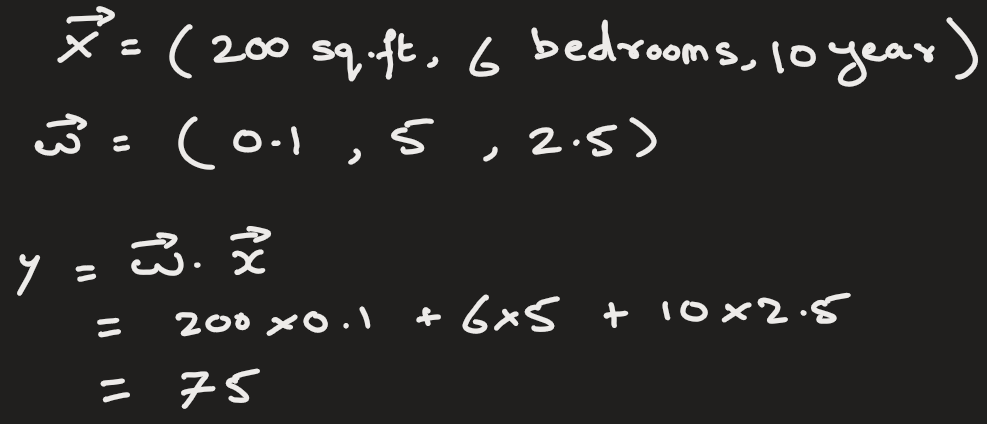 x⃗ = (200 sq.ft, 6 bedrooms, 10 year)
ω⃗ = (0.1, 5, 2.5)
y = ω⃗ · x⃗
= 200 × 0.1 + 6×5 + 10 × 2.5
= 75